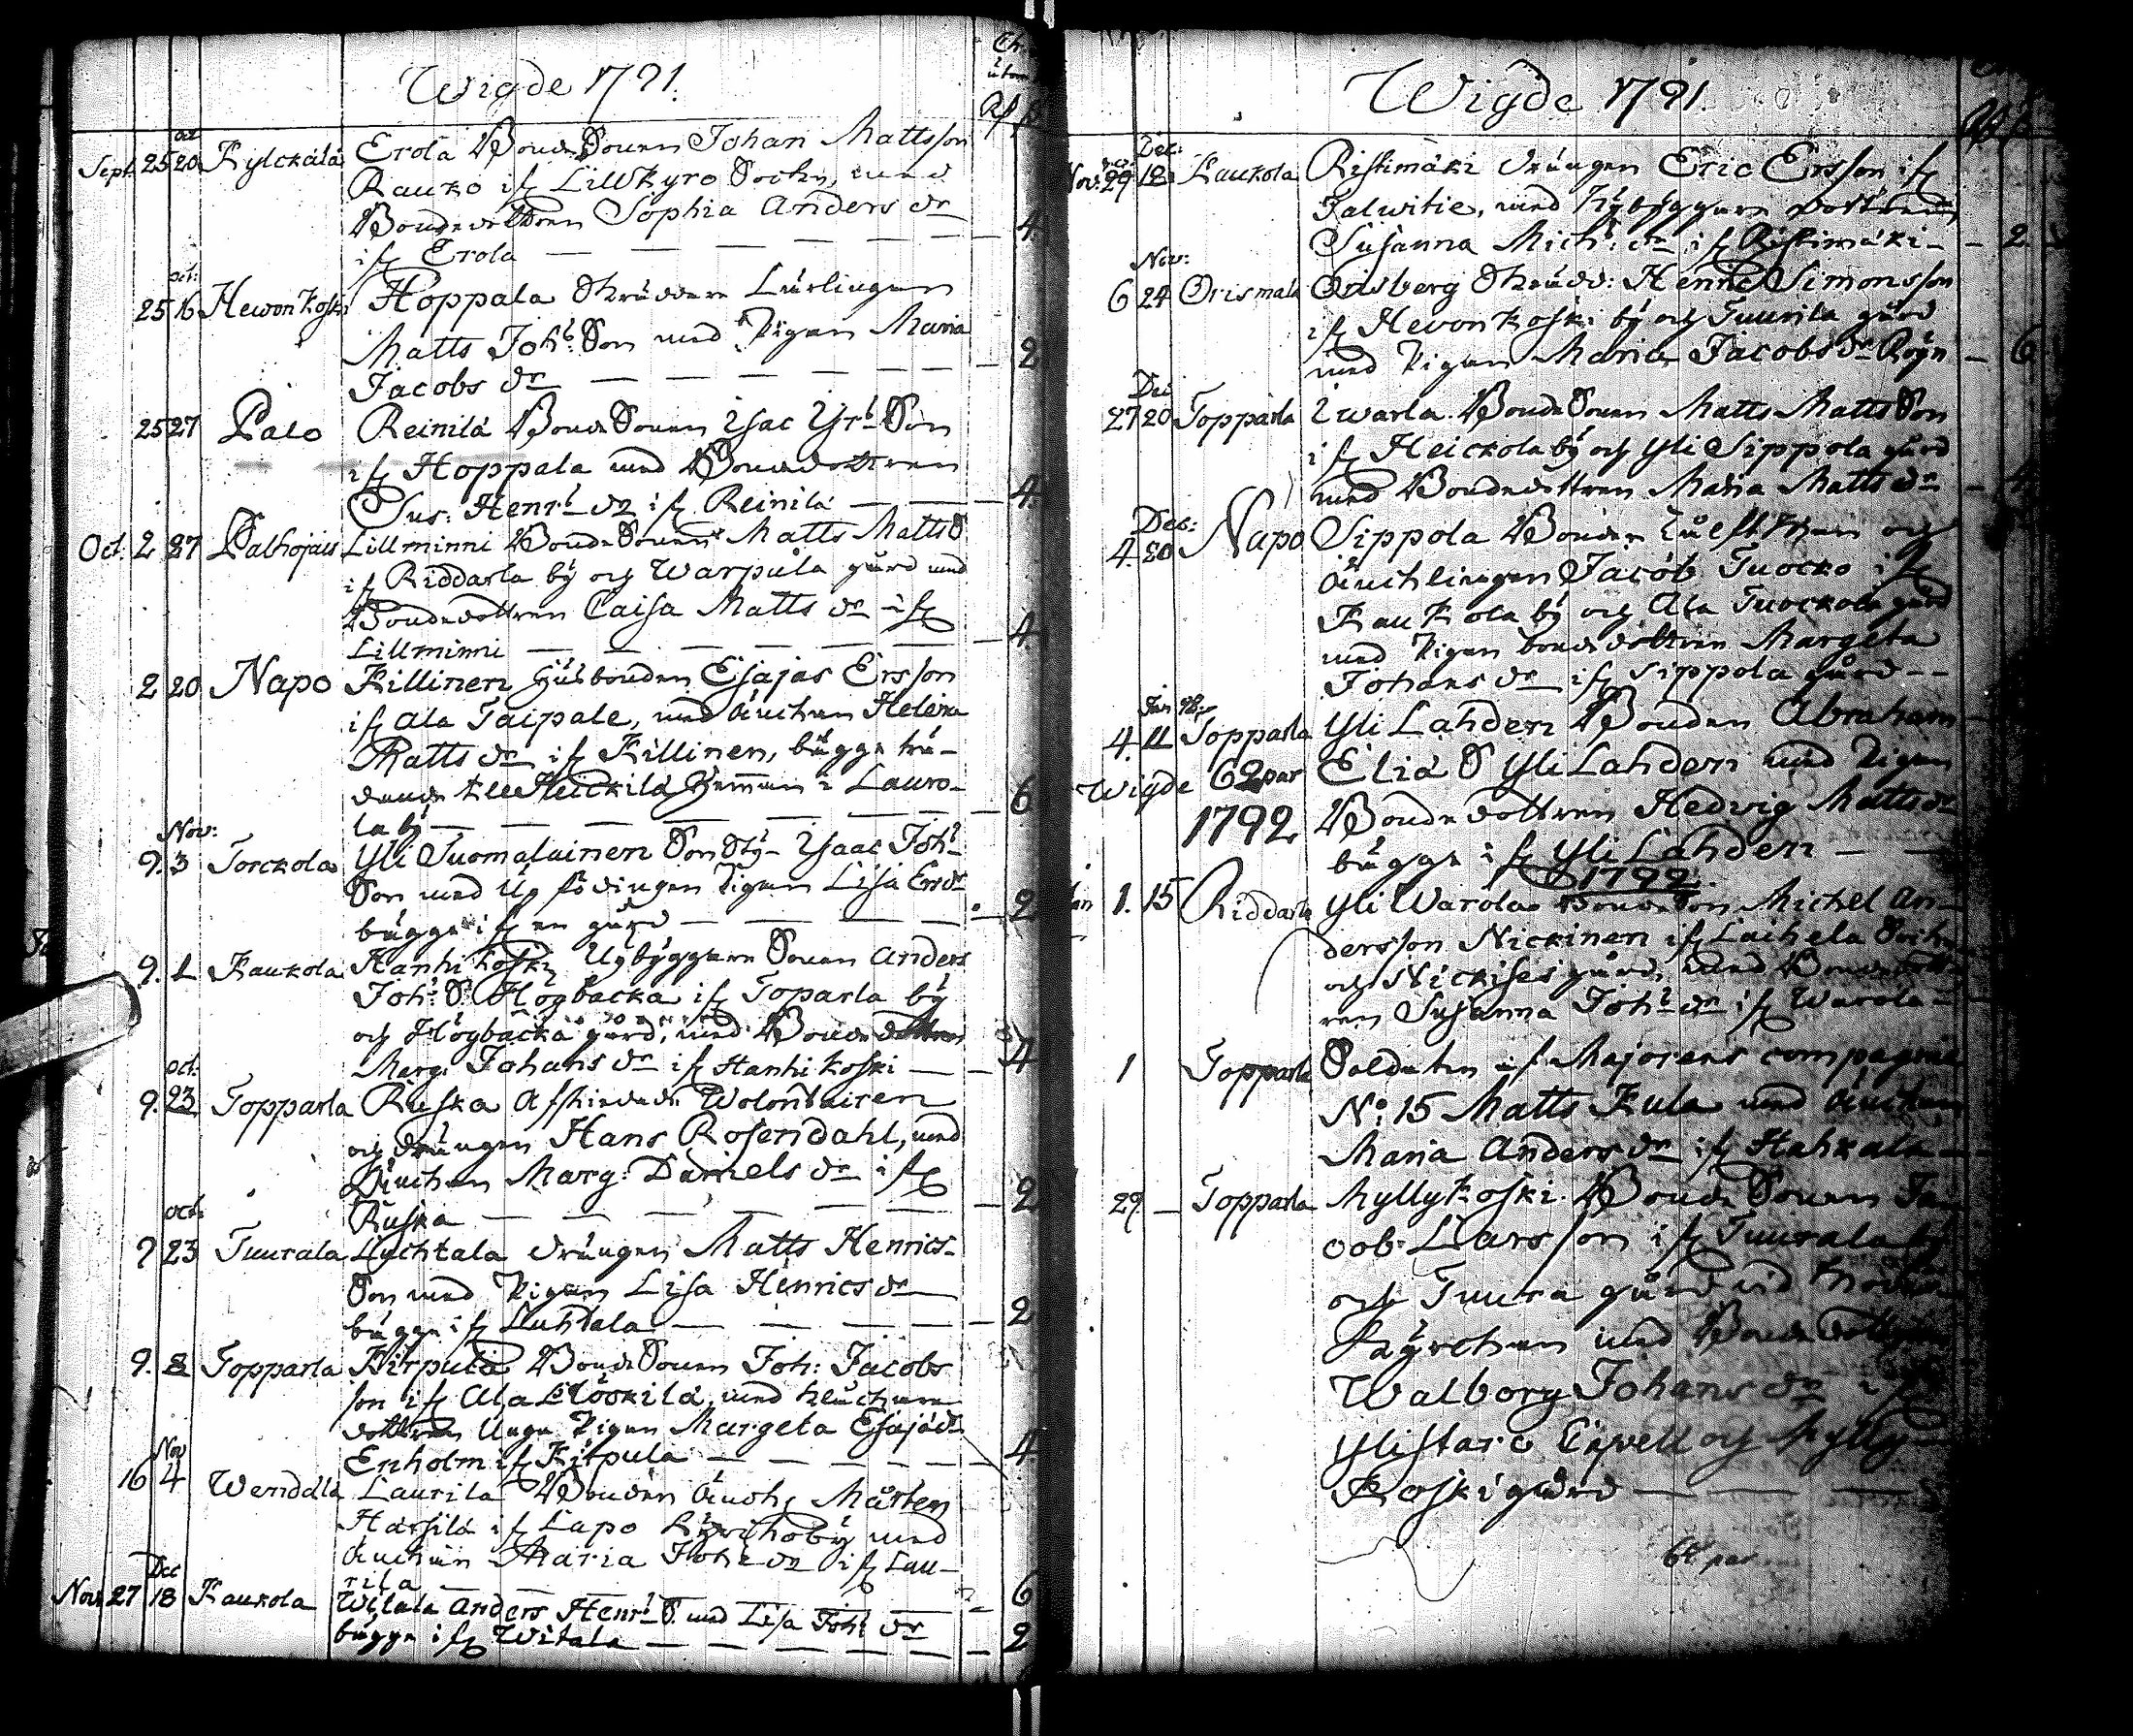 Wigde 1791.
Sept. 25 oct 20 Kylckälä Erola Bonde Sonen Johan Mattsson
Rauko if Lillkyro Sochn, med
Bondedottren Sophia Anders dr
if Erola — 4.
25 oct: 16 Hewonkoski Hoppala
Matts Joh: Son med Pigan Maria
Jacobs dr — 2
25 27 Palo Reinilä Bonde Sonen Isac Son
if Hoppala med Bondedottren
Sus: Henr: dr if Reinilä — 4.
Oct. 2 27 Palhojais Lillminni Bonde Sonen Matts Matts S
if Riddarla by och Warpula gård med
Bondedottren Caisa Matts dr if
Lillminni — 4.
2 20 Napo Killinen Husbonden Esajas Ersson
if Ala Taipale, med Änckan Helena
Matts dr if Killinen, bägge
Heickilä Hemman i Lauro-
la by — 6
Nov: 9. 3 Torckola Yli Tuomalainen Isaac Joh:
Son med Pigan Lisa Ers dr
bägge if en gård — 2
9. 1 Kaukola Hanhikoski Nybyggare Sonen Anders
Joh: S. Högbacka if Toparla by
och Högbacka gård, med Bonde dottren
Marg: Johans dr if Hanhikoski — 4
9. oct: 23 Topparla Ruska Afskedade Wolontairen
och drängen Hans Rosendahl, med
Änckan Marg: Daniels dr if
Ruska — 2
9 oct: 23 Tuurala Luchtala drängen Matts Henrics-
Son med Pigan Lisa Henrics dr
bägge if Luhtala — 2
9. 8 Topparla Kirpula Bonde Sonen Joh: Jacobs
son if Ala Löökilä, med
dottren Unga Pigan Margeta Esajæ dr
Enholm if Kirpula — 4
16 Nov 4 Wenddlä Laurila Bonden Mårten
Harsilä if Lapo Kyrckoby med
Änckan Maria Joh: dr if Lau-
rila — 6
Nov. 27 Dec 18 Kaukola Witala Anders Henr: S. med Lisa Joh: dr
bägge if Witala — 2
Wigde 1791.
Nov: 29 Dec: 18 Kaukola Ristimäki drängen Eric Ersson if
Talwitie, med Nybyggare dottren
Susanna Mich: dr if Ristimäki — 2
Nov: 6 24 Orismala Orisberg Henric Simonsson
if Hevonkoski by och Tuurila gård
med Pigan Maria Jacobs dr Röyn — 6
27 Dec 20 Topparla Iwarla Bonde Sonen Matts Matts Son
if Heickola by och Yli Sippola gård
med Bondedottren Maria Matts dr — 4
Dec: 4. 30 Napo Sippola Bonden och
Änchlingen Jacob Tuocko if
Kaukola by och Ala Tuockola gård
med Pigan bonde dottren Margeta
Johans dr if Sippola gård —
4. 11 Topparla Yli Lahden Bonden Abraham
Eliä S Yli Lahden med Pigan
Wigde 62 par
1792 Bonde dottren Hedvig Matts dr
bägge if Yli Lahden —
1792.
Jan 1. 15 Riddarla Yli Warola Bonde Son Michel An-
dersson Nickinen if Laihela Sochn
och Nickises gård, med Bonde dott-
ren Susanna Joh: dr if Warola —
1 Topparla Soldaten af Majorens compagnie
No: 15 Matts Kula med Änckan
Maria Anders dr if Hahkala —
29 — Topparla Myllykoski Bonde Sonen Ja-
cob Larsson if Tuurala by
och Tuura gård vid
Kyrckan med Bonde dottren
Walborg Johans dr if
Ylistaro Capell och Mylly-
Koski gård —
62 par